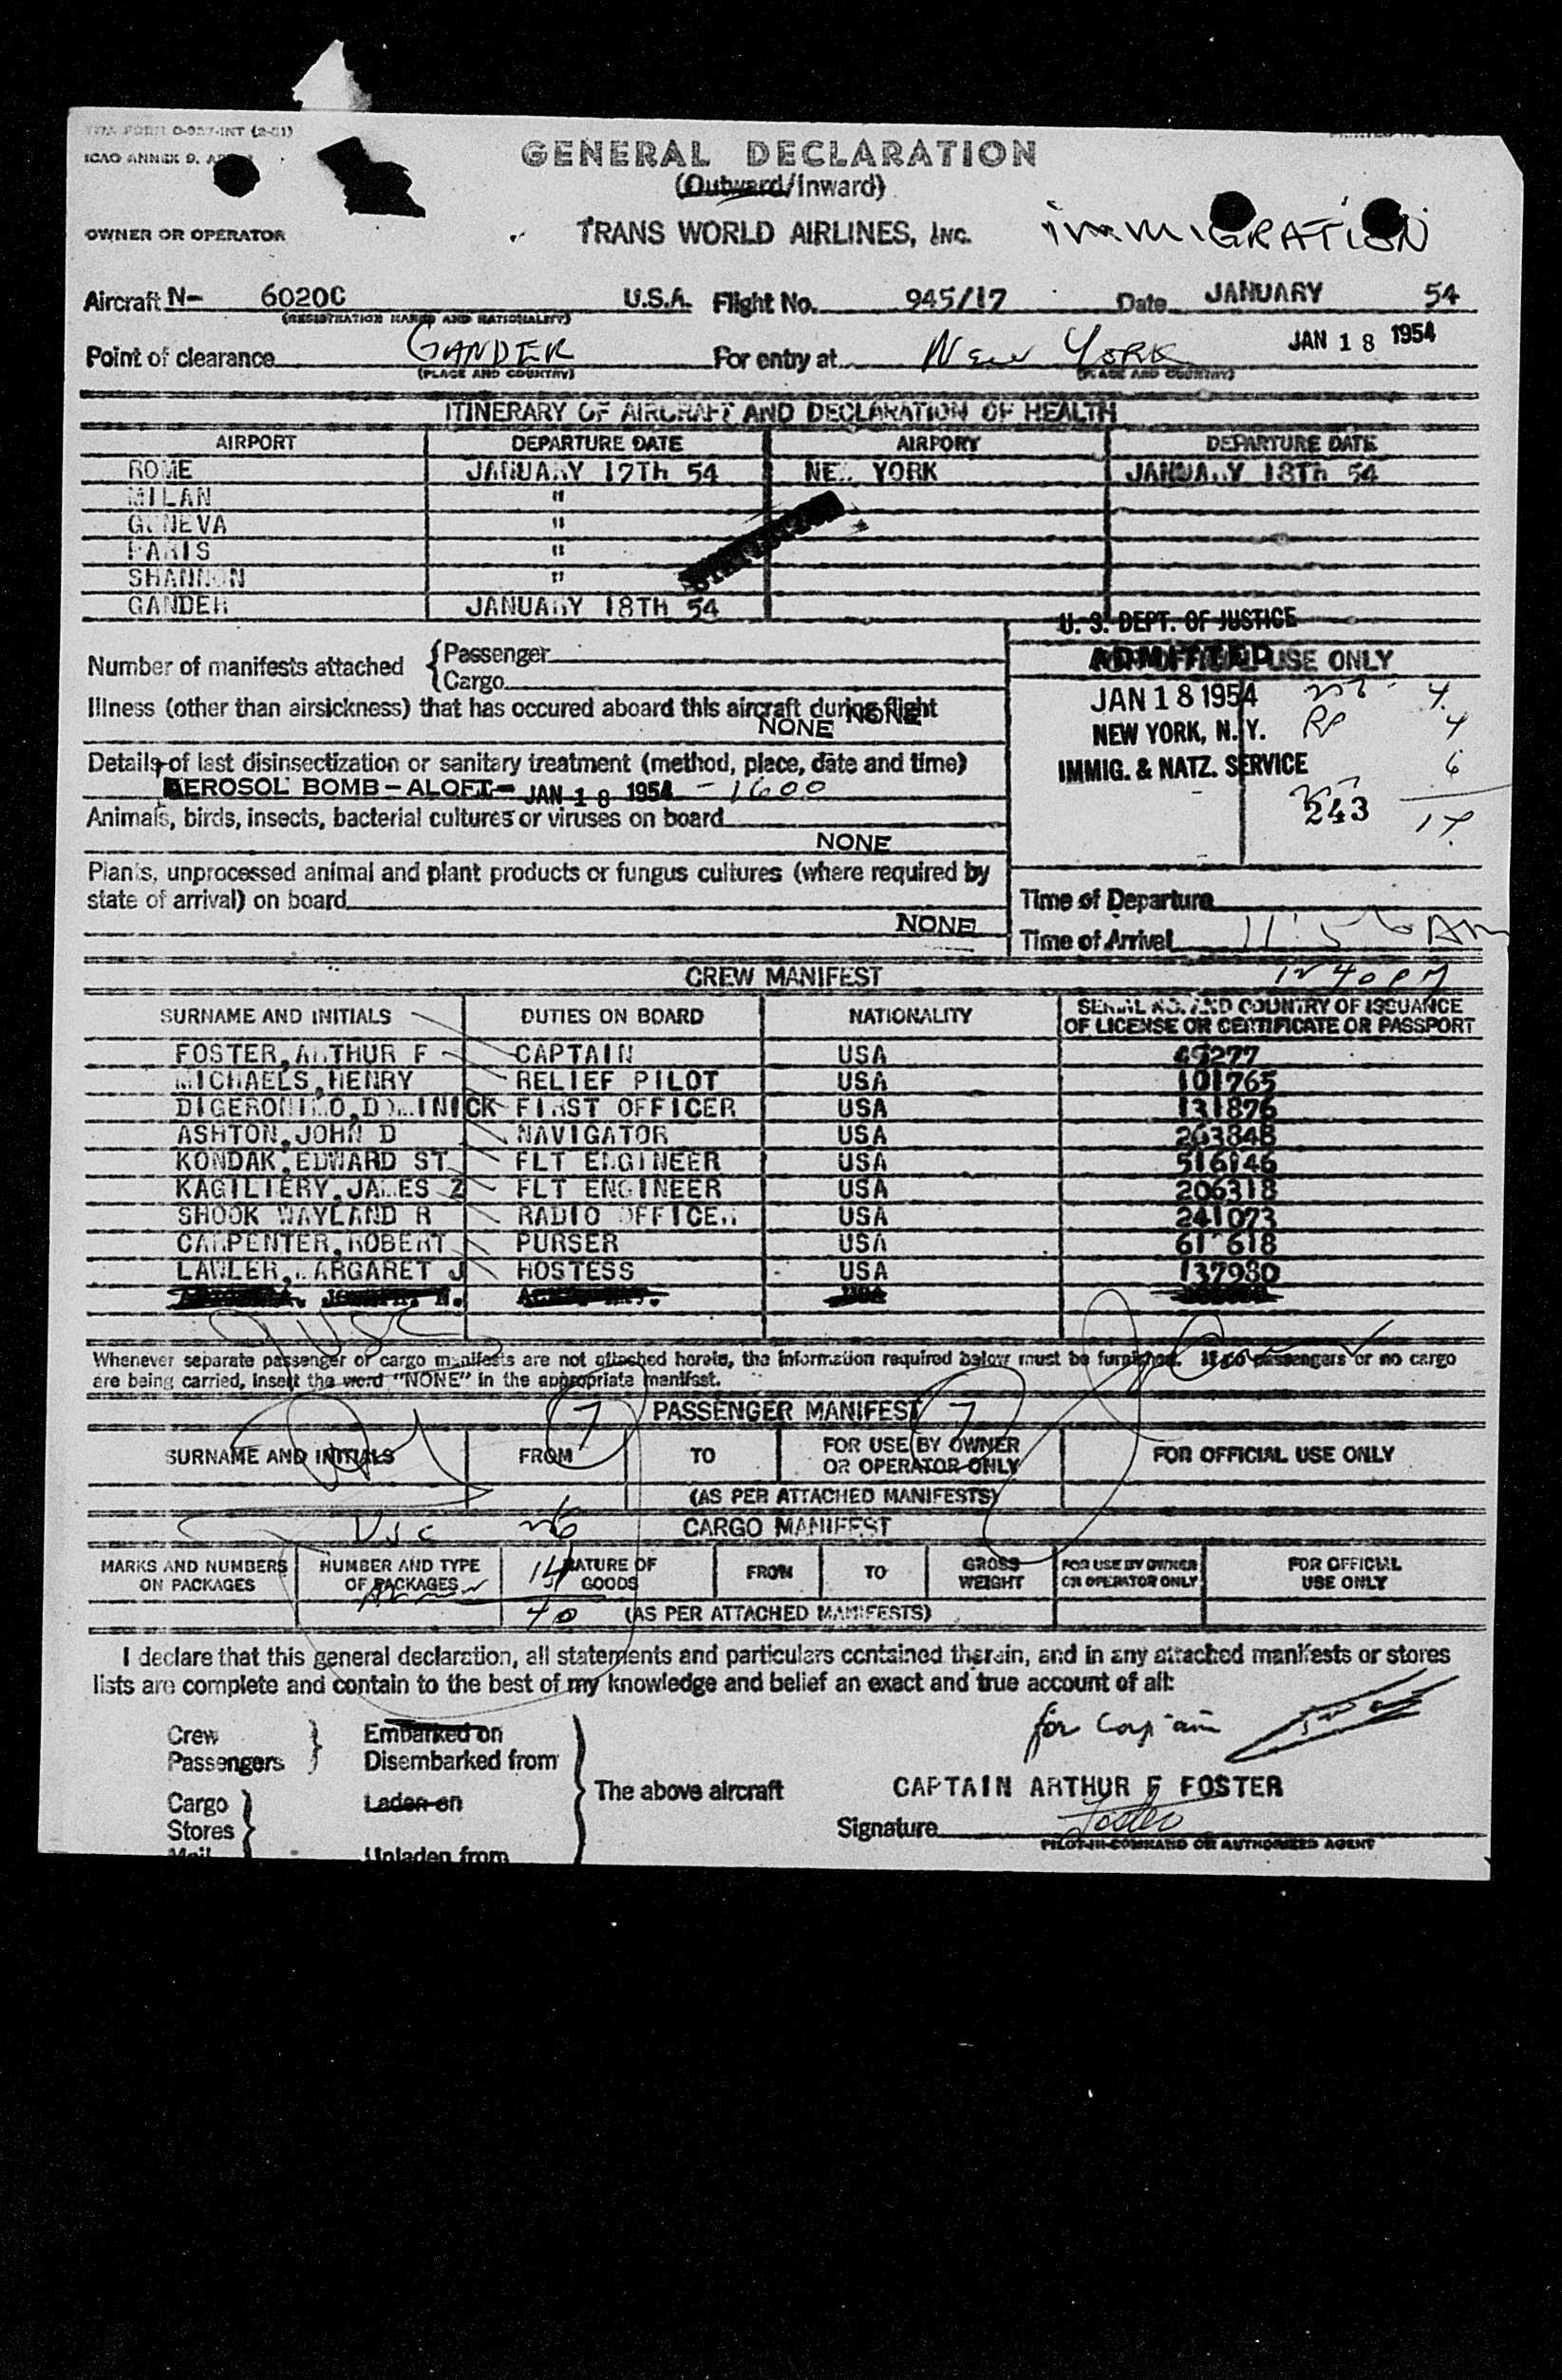 GENERAL DECLARATION
(Outward/Inward)
OWNER OR OPERATOR TRANS WORLD AIRLINES, INC. IMMIGRATION
Aircraft N- 6020C U.S.A. Flight No. 945/17 Date JANUARY 54
(REGISTRATION MARKS AND NATIONALITY)
JAN 18 1954
Point of clearance GANDER For entry at New York
(PLACE AND COUNTRY) (PLACE AND COUNTRY)
ITINERARY OF AIRCRAFT AND DECLARATION OF HEALTH
AIRPORT DEPARTURE DATE AIRPORT DEPARTURE DATE
ROME JANUARY 17TH 54 NEW YORK JANUARY 18TH 54
MILAN "
GENEVA "
PARIS "
SHANNON "
GANDER JANUARY 18TH 54
U. S. DEPT. OF JUSTICE
ADMITTED
USE ONLY
JAN 18 1954
NEW YORK, N. Y.
IMMIG. & NATZ. SERVICE
4
RP 4
6
243
Number of manifests attached {Passenger
Cargo
Illness (other than airsickness) that has occured aboard this aircraft during flight
NONE NONE
Details of last disinsectization or sanitary treatment (method, place, date and time)
AEROSOL BOMB - ALOFT - JAN 18 1954 - 1600
Animals, birds, insects, bacterial cultures or viruses on board
NONE
Plants, unprocessed animal and plant products or fungus cultures (where required by
state of arrival) on board
NONE
Time of Departure
Time of Arrival 11:56 AM
12 40 PM
CREW MANIFEST
SURNAME AND INITIALS DUTIES ON BOARD NATIONALITY SERIAL NO. AND COUNTRY OF ISSUANCE
OF LICENSE OR CERTIFICATE OR PASSPORT
FOSTER, ARTHUR F CAPTAIN USA 45277
MICHAELS, HENRY RELIEF PILOT USA 101765
DIGERONIMO, DOMINICK FIRST OFFICER USA 131876
ASHTON, JOHN D NAVIGATOR USA 263848
KONDAK, EDWARD ST FLT ENGINEER USA 516946
KAGILIERY, JAMES Z FLT ENGINEER USA 206318
SHOOK WAYLAND R RADIO OFFICER USA 241073
CARPENTER, ROBERT PURSER USA 61 618
LAWLER, MARGARET J HOSTESS USA 137980
Whenever separate passenger or cargo manifests are not attached hereto, the information required below must be furnished. If no passengers or no cargo
are being carried, insert the word "NONE" in the appropriate manifest.
PASSENGER MANIFEST
7 7
SURNAME AND INITIALS FROM TO FOR USE BY OWNER
OR OPERATOR ONLY FOR OFFICIAL USE ONLY
(AS PER ATTACHED MANIFESTS)
USC 26
CARGO MANIFEST
MARKS AND NUMBERS
ON PACKAGES NUMBER AND TYPE
OF PACKAGES NATURE OF
GOODS FROM TO GROSS
WEIGHT FOR USE BY OWNER
OR OPERATOR ONLY FOR OFFICIAL
USE ONLY
14
40 (AS PER ATTACHED MANIFESTS)
I declare that this general declaration, all statements and particulars contained therein, and in any attached manifests or stores
lists are complete and contain to the best of my knowledge and belief an exact and true account of all:
Crew
Passengers } Embarked on
Disembarked from
Cargo
Stores
Mail } Laden on
Unladen from
The above aircraft
for Captain
CAPTAIN ARTHUR F FOSTER
Signature Foster
PILOT-IN-COMMAND OR AUTHORIZED AGENT